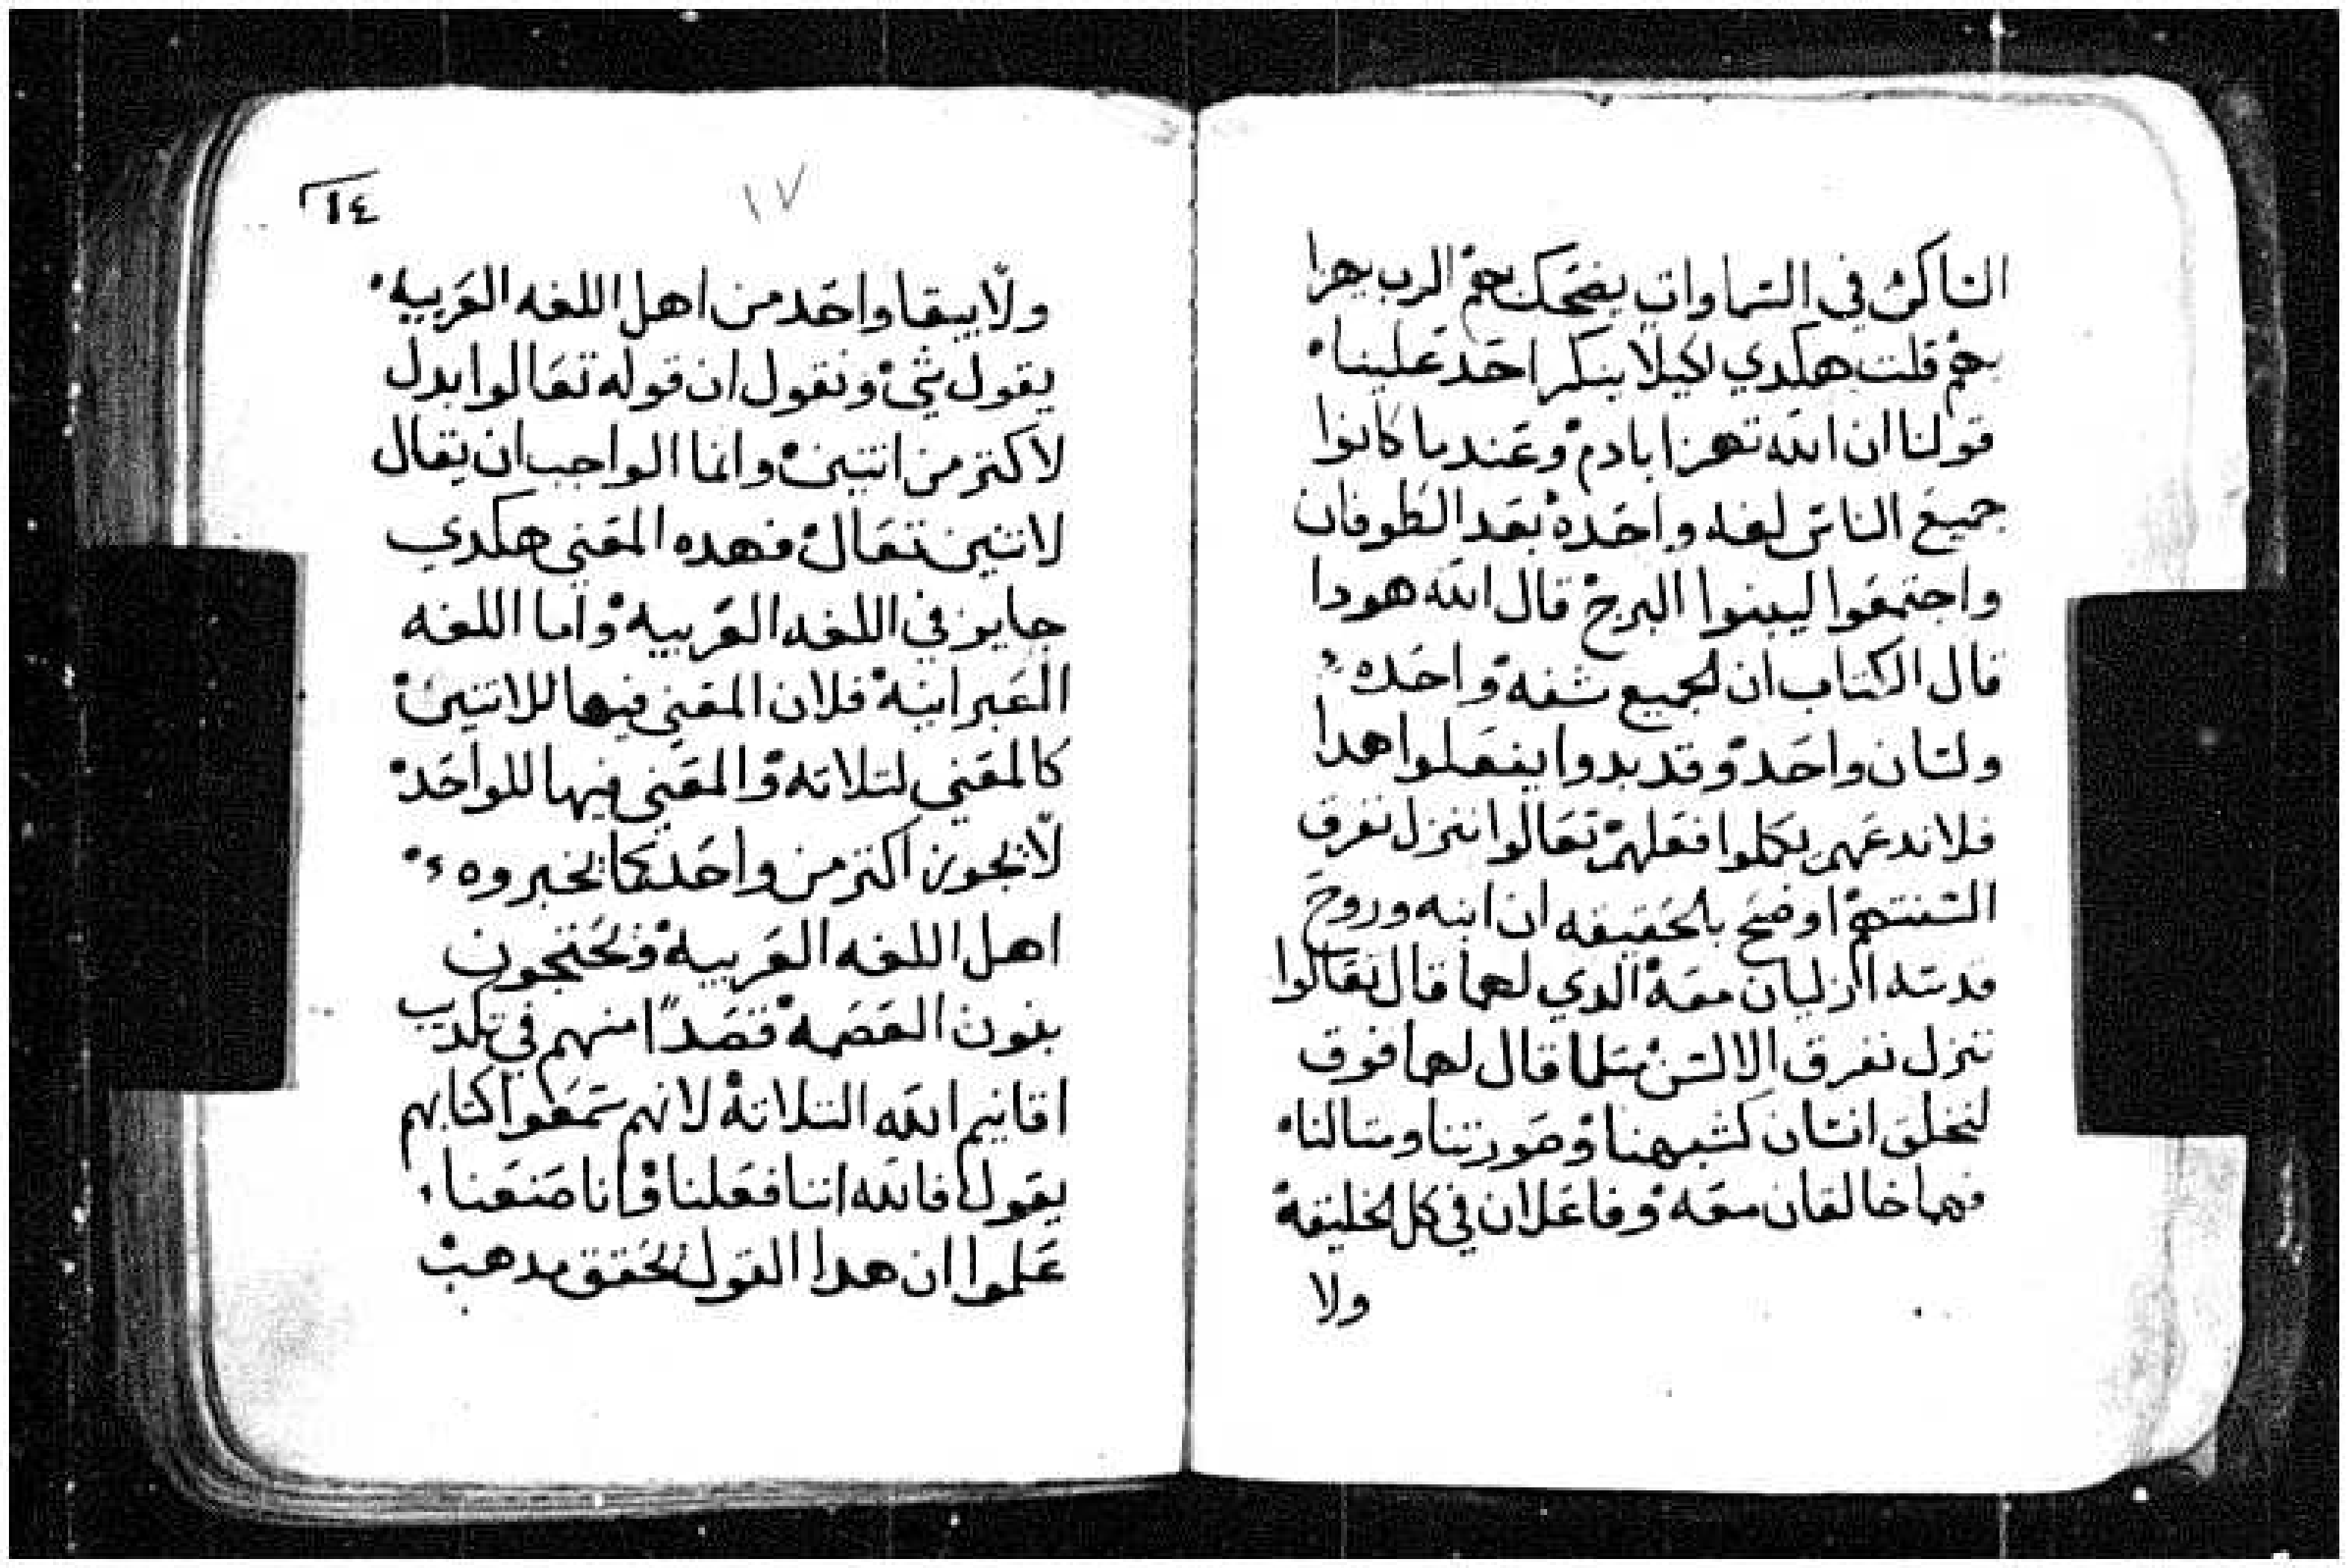 الساكن في السماوات يضحك بهم الرب يهزا
بهم قلت هكدي لكيلا ينكر احد علينا
قولنا ان الله تهزا بادم وعندما كانوا
جميع الناس لغه واحده بعد الطوفان
واجتمعوا ليبنوا البرج قال الله هودا
قال الكتاب ان لجميع شفه واحده
ولسان واحد وقد بدوا يفعلوا هدا
فلا ندعهم يكلوا فعلهم تعالوا ننزل نفرق
السنتهم اوضح بالحقيقه ان ابنه وروح
قدسه ازليان معه الدي لهما قال تعالوا
ننزل نفرق الالسن متلما قال لهما فوق
لنخلق انسان كشبهنا وصورتنا ومتالنا
فهما خالقان معه وفاعلان في كل الخليقة
ولا
١٤
١٧
ولا يبقا واحد من اهل اللغه العربيه
يقول شي ونقول ان قوله تعالوا يدل
لاكتر من اتنين وانما الواجب ان يقال
لاتنين تعال فهده المعني هكدي
جايز في اللغه العربيه واما اللغه
العبرانيه فلان المعني فيها للاتنين
كالمعني لتلاته والمعني فيها للواحد
لا يجوز اكتر من واحد كما يخبروه
اهل اللغه العربيه فيحتجون
بنون العصمه قصدًا منهم في تكديب
اقانيم الله التلاتة لانهم سمعوا كتابهم
يقول قال الله اننا فعلنا وانا صنعنا
علموا ان هدا القول يحقق مدهب